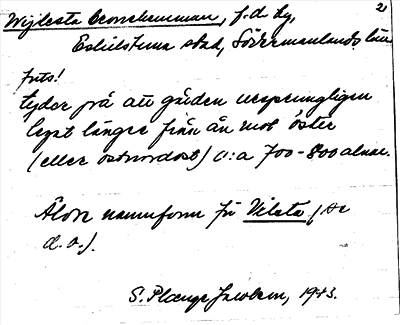 2
Wijlesta Cronohemman, f.d. by,
Eskilstuna stad, Södermanlands län
forts!
tyder på att gården ursprungligen
legat längre från ån mot öster
(eller ostnordost) c:a 700-800 alnar.
Äldre namnform för Vilsta (se
d.o.).
S. Plænge Jacobson, 1943.